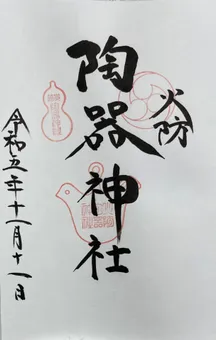 火防
陶器神社
令和五年十一月十一日